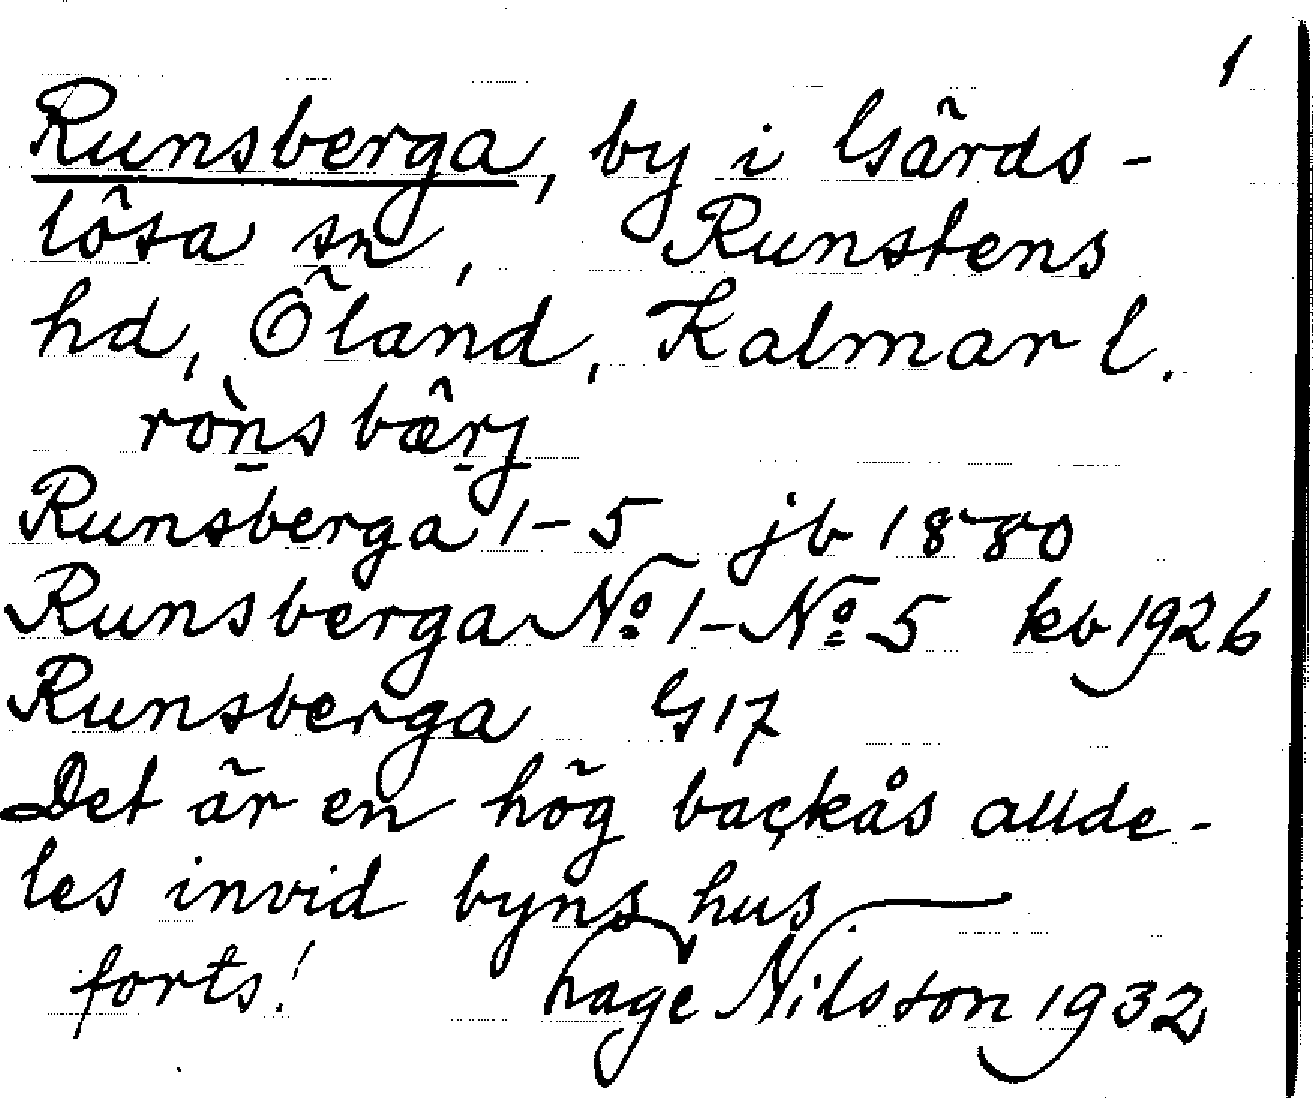 1
Runsberga, by i Gärds-
lösa sn, Runstens
hd, Öland, Kalmar l.
rònsbærj
Runsberga 1-5 jb 1880
Runsberga No 1 - No 5 kb 1926
Runsberga G 17
Det är en hög backås allde-
les invid byns hus
forts! Hage Nilsson 1932